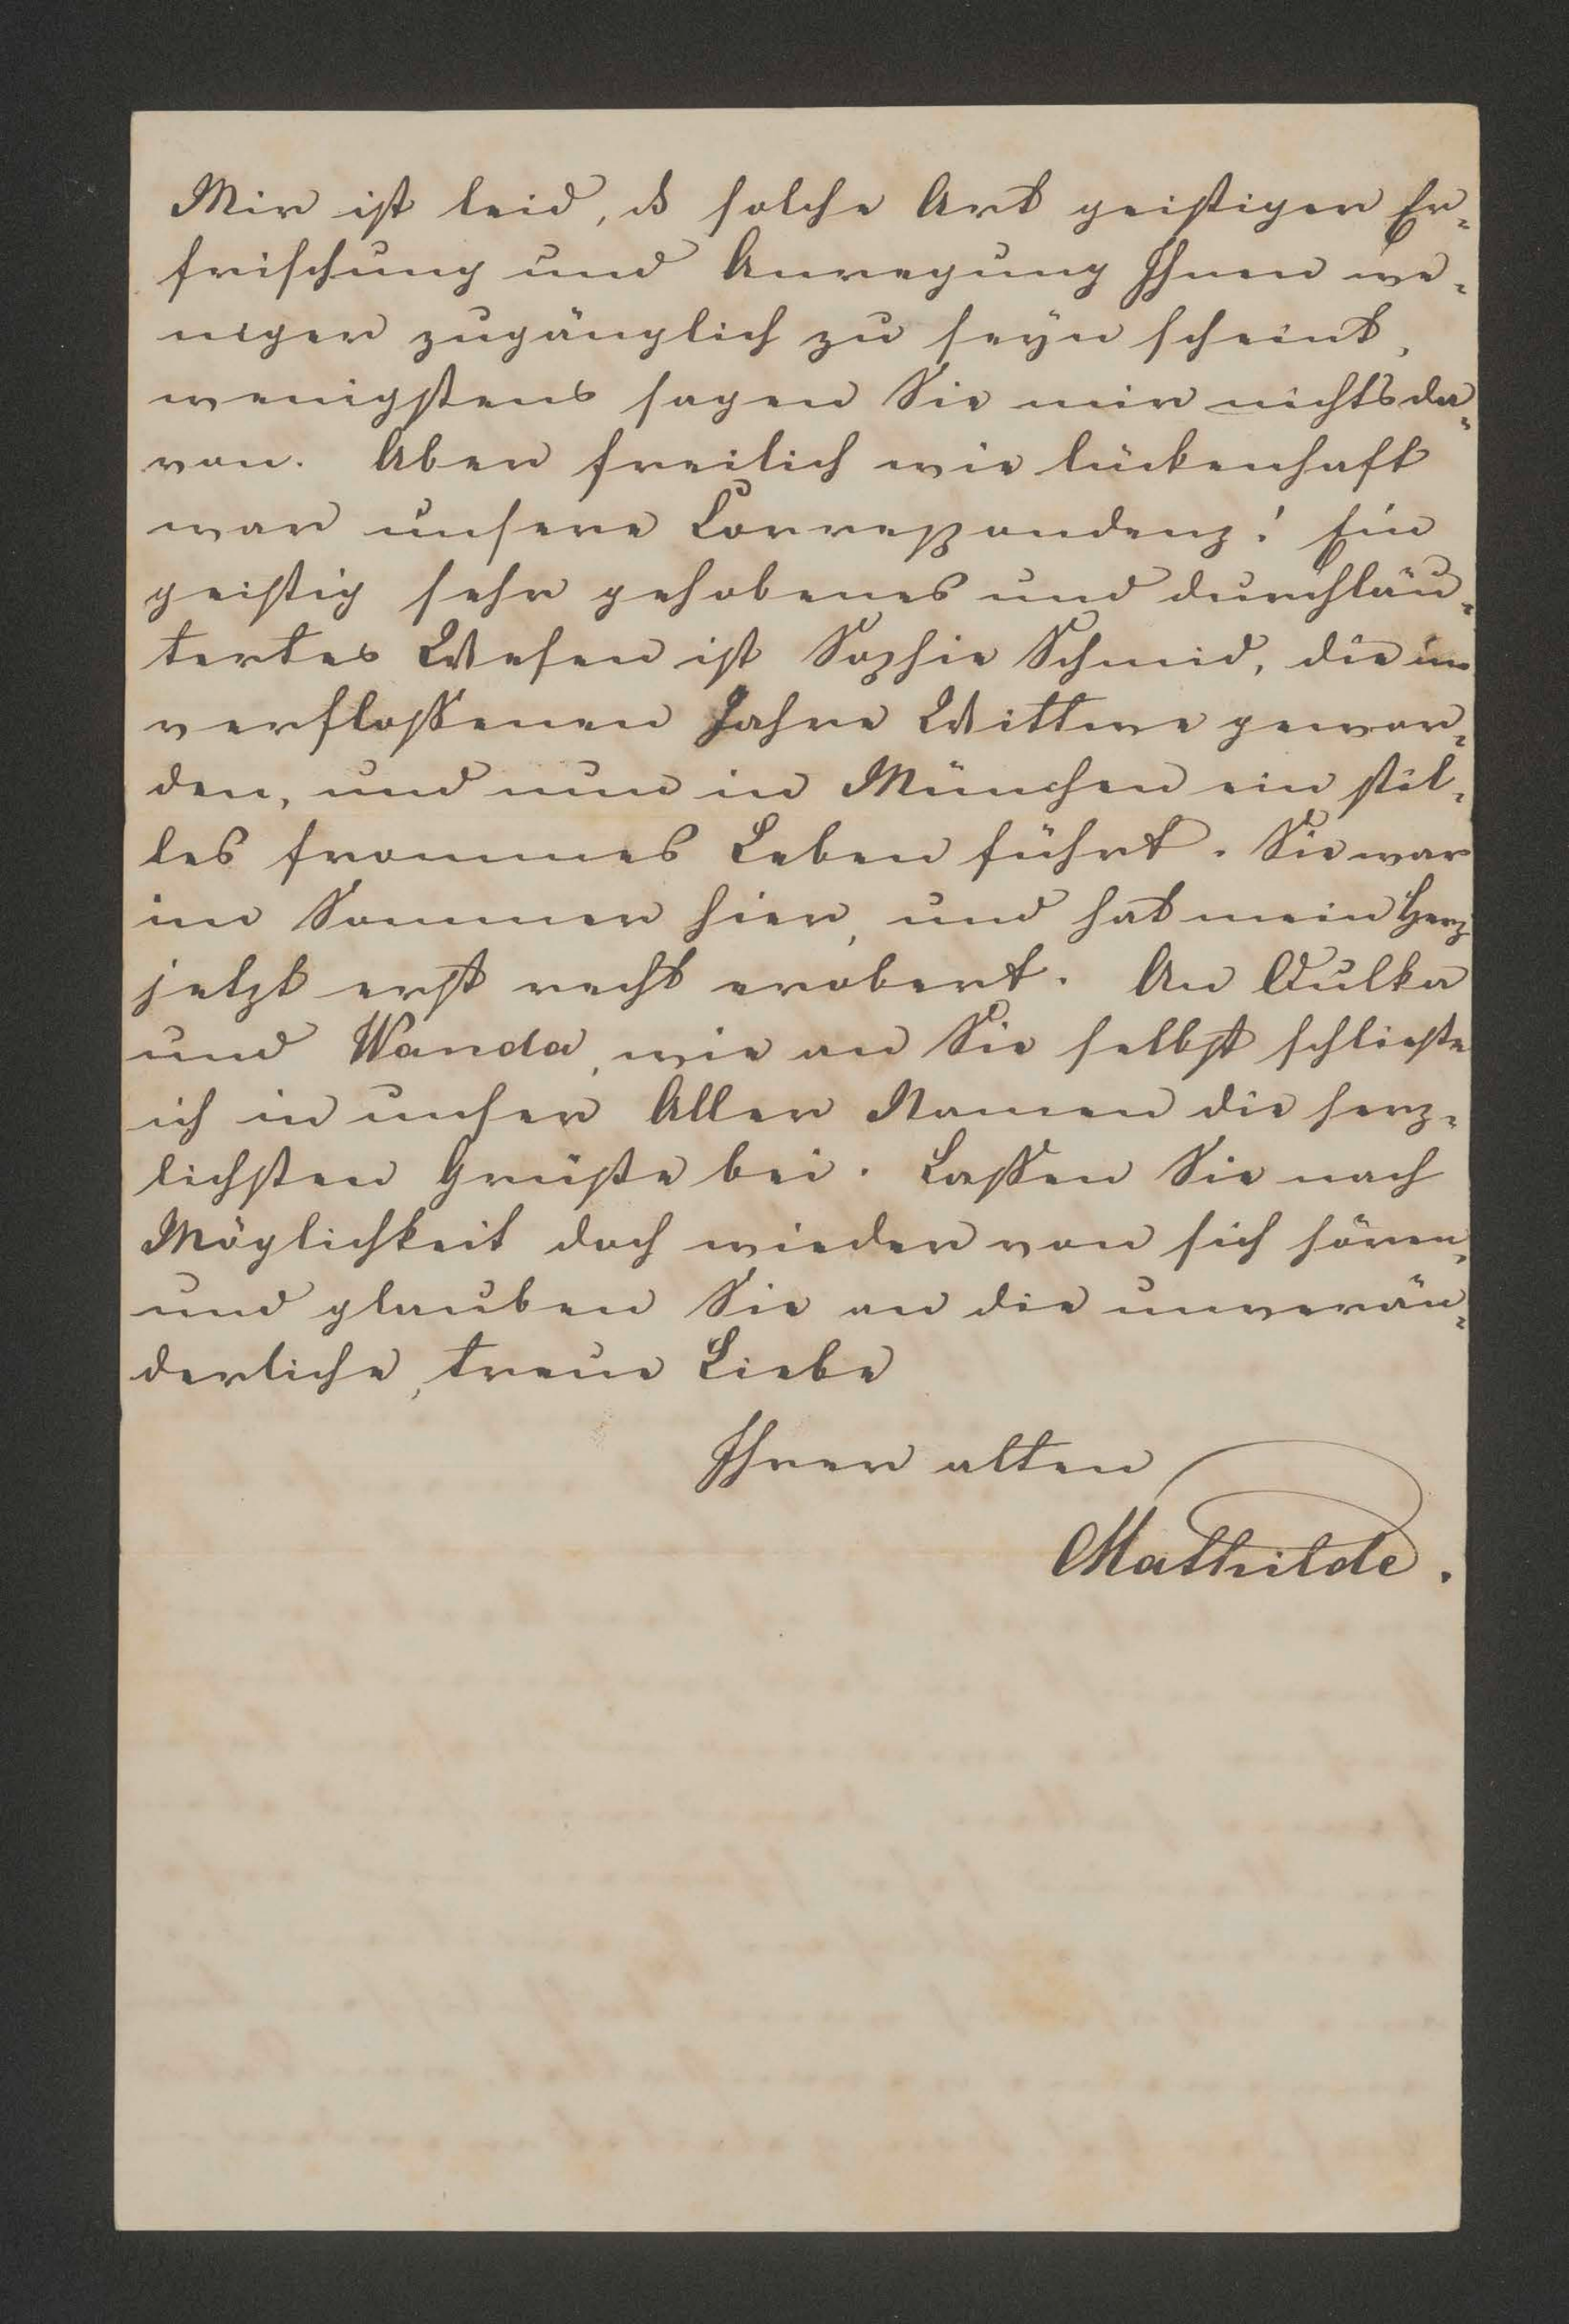 Mir ist leid, ds solche Art geistiger Er-
frischung und Anregung Ihnen we-
niger zugänglich zu seyn scheint,
wenigstens sagen Sie mir nichts da-
von. Aber freilich wie lückenhaft
war unsere Correspondenz! Ein
geistig sehr gehobenes und durchläu-
tertes Wesen ist Sophie Schmid, die im
verflossenen Jahre Wittwe gewor-
den, und nun in München ein stil-
les frommes Leben führt. Sie war
im Sommer hier, und hat mein Herz
jetzt erst recht erobert. An Dulka
und Wanda, wie an Sie selbst schließe
ich in unser Aller Namen die herz-
lichsten Grüße bei. Lassen Sie nach
Möglichkeit doch wieder von sich hören,
und glauben Sie an die unverän-
derliche, treue Liebe
Ihrer alten
Mathilde.